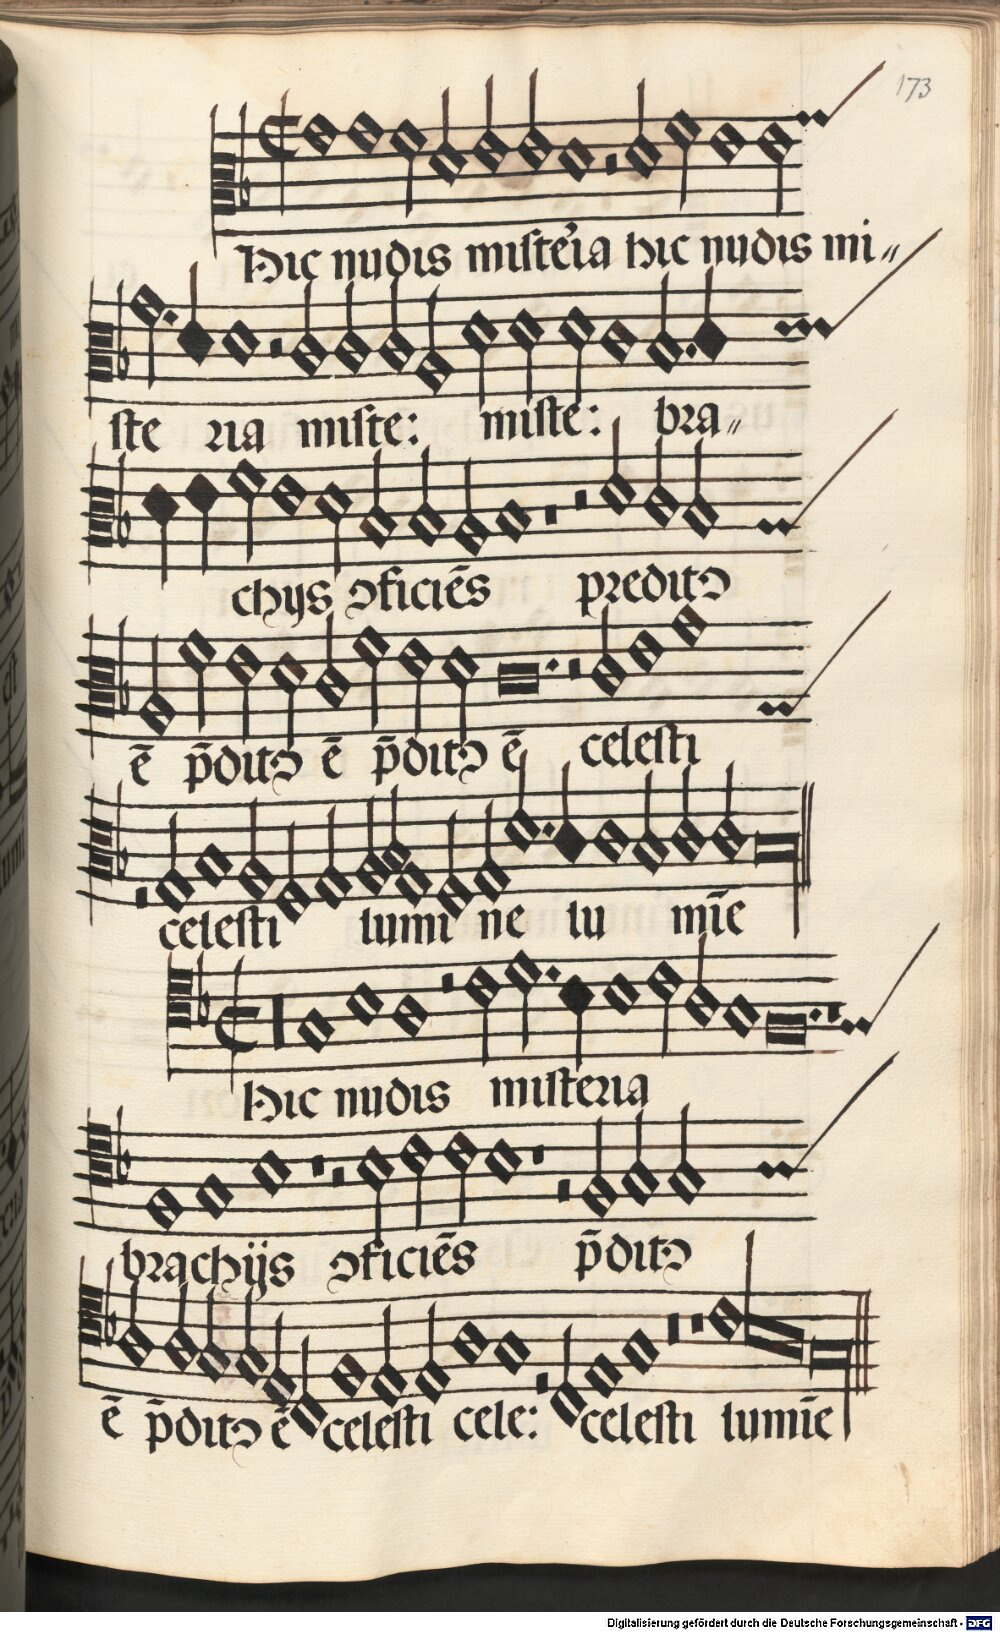 173
Hic nudis misteria hic nudis mi〃
ste ria miste: miste: bra〃
chijs ↄficiēs preditꝰ
ē p̄ditꝰ ē p̄ditꝰ ē celesti
celesti lumi ne lu mīe
Hic nudis misteria
brachijs ↄficiēs p̄ditꝰ
ē p̄ditꝰ ē celesti cele: celesti lumīe
Digitalisierung gefördert durch die Deutsche Forschungsgemeinschaft - DFG